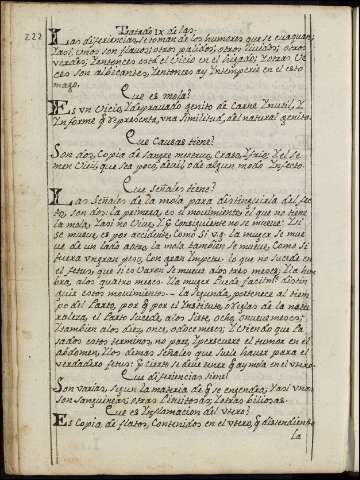 222
Tratado IX de las
Las diferencias se toman de los humores que se evaquan;
Y asi, Unos son flavos; otros palidos, otros lividos; otros
verdes, Y entonces está el Vicio en el higado; Y otras Ve-
ces son albicantes, Y entonces ay Intemperie en el esto-
mago.
Que es mola?
Es un Vicio, Y depravado genito de Carne Ynutil, Y
Ynforme q̃ representa, una Similitud, del natural genito.
Que Causas tiene?
Son dos, Copia de sangre mestrua, Crasa, Y fria; Y el Se-
men Viril que sea poco, devil, o de algun modo Infecto.
Que Señales tiene?
Las Señales de la mola para distinguirla del fec-
to, son dos: la primera, es el movimiento el que no tiene
la mola, Y asi no Vive, Y q̃ Consiguiente no se mueve: Y si
se mueve, es por accidente, Como si V.g. la muger Se mue-
ve de un lado aotro, la mola tambien Se mueve, Como Si
fuera Un gran peso, Con gran Impetu: lo que no sucede en
el fetus, que si es Varon Se mueve alos tres meses; Y la hem-
bra, alos quatro meses. Y la muger Puede facilmte. distin-
guir estos movimientos. — la Segunda, pertenece al tiem-
po del Parto, por q̃ por el Instituto, o leyes de la natu-
raleza, el Parto Sucede, alos Siete, ocho, o nueve meses;
Y tambien alos diez, once, o doce meses; Y Viendo que Pa-
sados estos terminos, no pare, Y persevere el tumor en el
abdomen, Y los demas Señales que Suele haver para el
verdadero fetus: q̃ cierto se deve creer q̃ ay mola en el Vtero.
Que diferencias tiene?
Son varias, Segun la materia de q̃ se engendra; Y asi Unas
son sanguineas, otras Pituitosas, Y otras biliosas.
Que es Ynflamacion del Vtero?
Es Copia de flatos, Contenidos en el Vtero, q̃ distendiendo
la